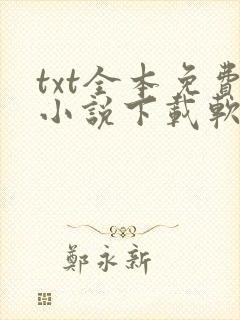 txt全本免費
小說下載軟
鄭永新